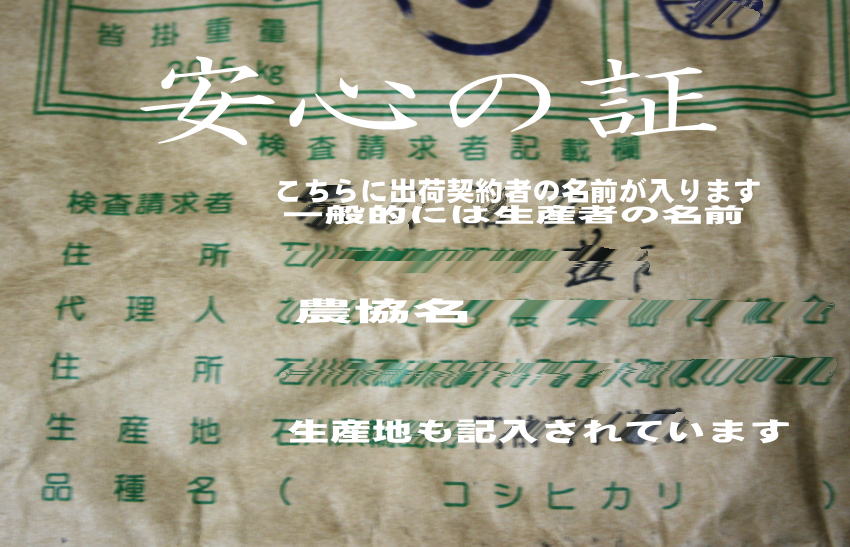 皆掛重量
30.5 kg
安心の証
検査請求者記載欄
検査請求者
こちらに出荷契約者の名前が入ります
一般的には生産者の名前
住所
代理人
農協名
農業協同組合
住所
生産地
生産地も記入されています
品種名 ( コシヒカリ )